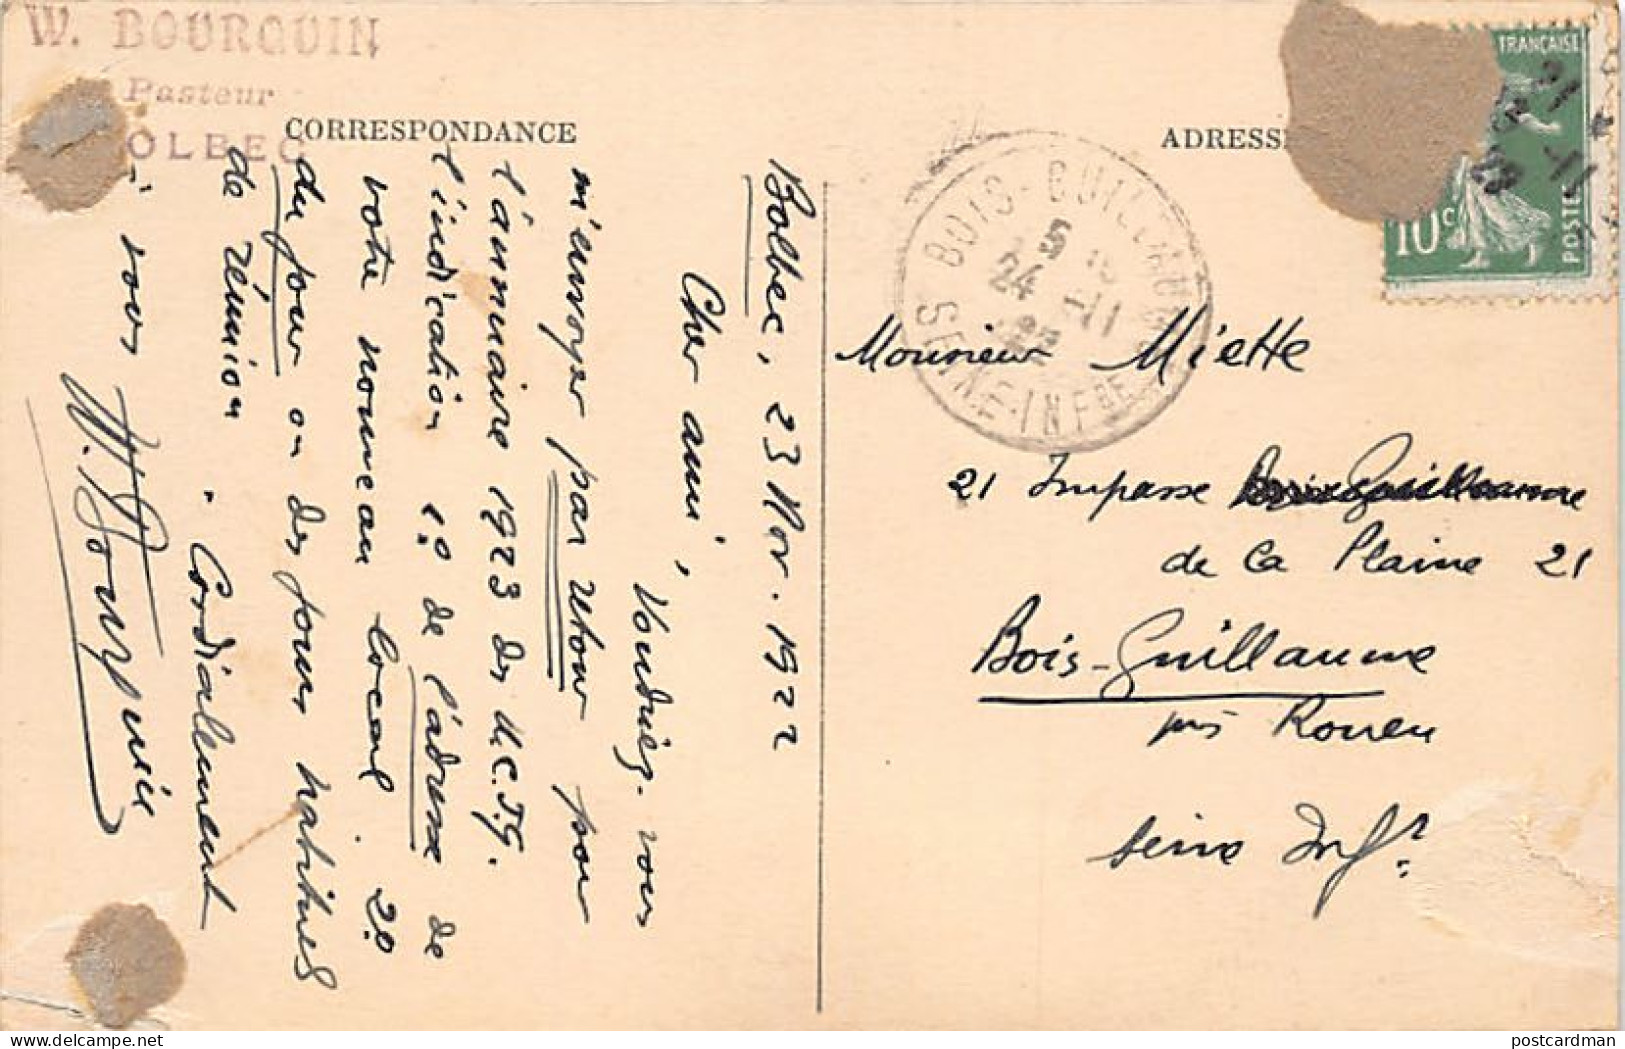 W. BOURQUIN
Pasteur
OLBEC
CORRESPONDANCE
Bolbec, 23 Nov. 1922
Cher ami,
Voudriez-vous
m'envoyer par retour pour
l'annuaire 1923 des U.C.J.G.
l'indication 1º de l'adresse de
votre nouveau local 2º
du jour ou des jours habituels
de réunion. Cordialement
à vous
W. Bourquin
ADRESSE
Monsieur Miette
21 Impasse Bois Guillaume
de la Plaine 21
Bois-Guillaume
près Rouen
Seine Infre
BOIS-GUILLAUME
24 -11
SEINE-INFRE
TRANÇAISE
10c
POSTES
postcardman